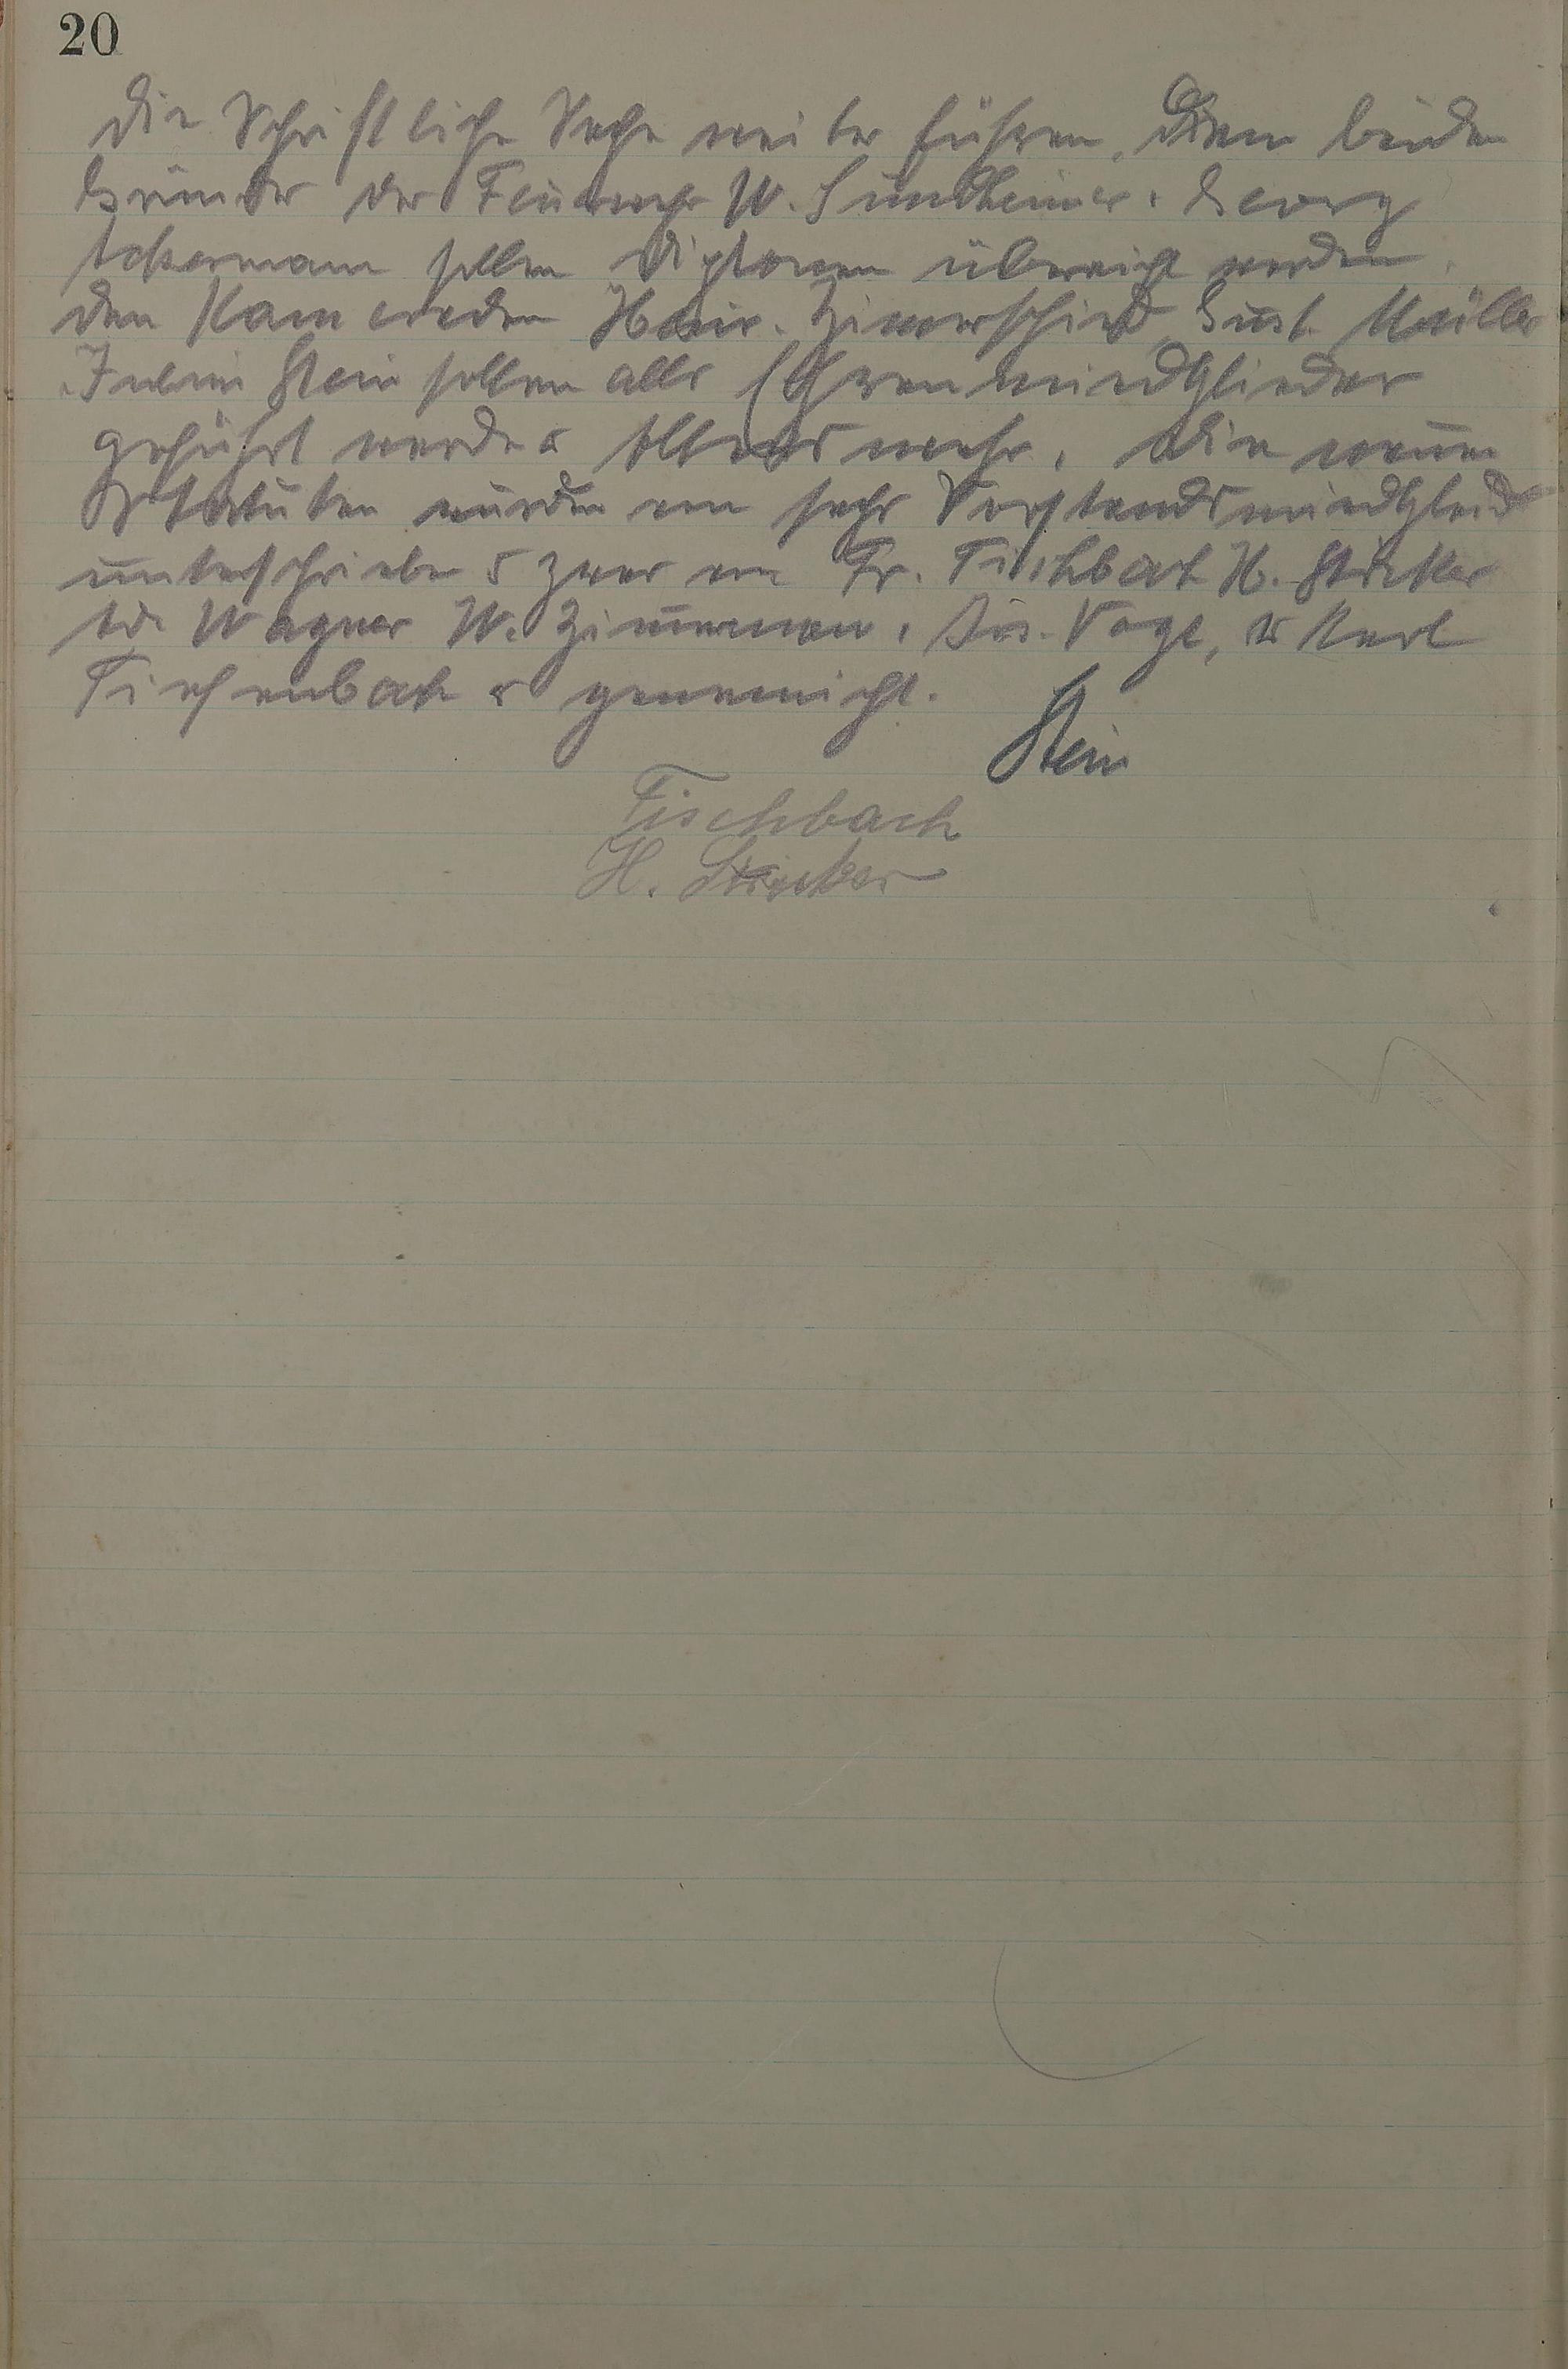 20
die Schriftliche Sache weiter führen. Denn beiden
Gründer der Feuerwehr W. Sundheimer, Georg
Ackermann sollen Diplomen überreicht werden.
den Kameraden Heinr. Zimerschied, Gust. Müller
Stein sollen alls Ehrenmiedglieder
geführt werden Alterswehr. die neuen
Statuten wurden von sechs Vorstandsmiedglied
unterschrieben u zwar von Fr. Fischbach H. Stricker
Ad. Wagner W. Zimmerman, Vogt, u Karl
Tiefenbach u genemicht.
Stein
Fischbach
H. Stricker